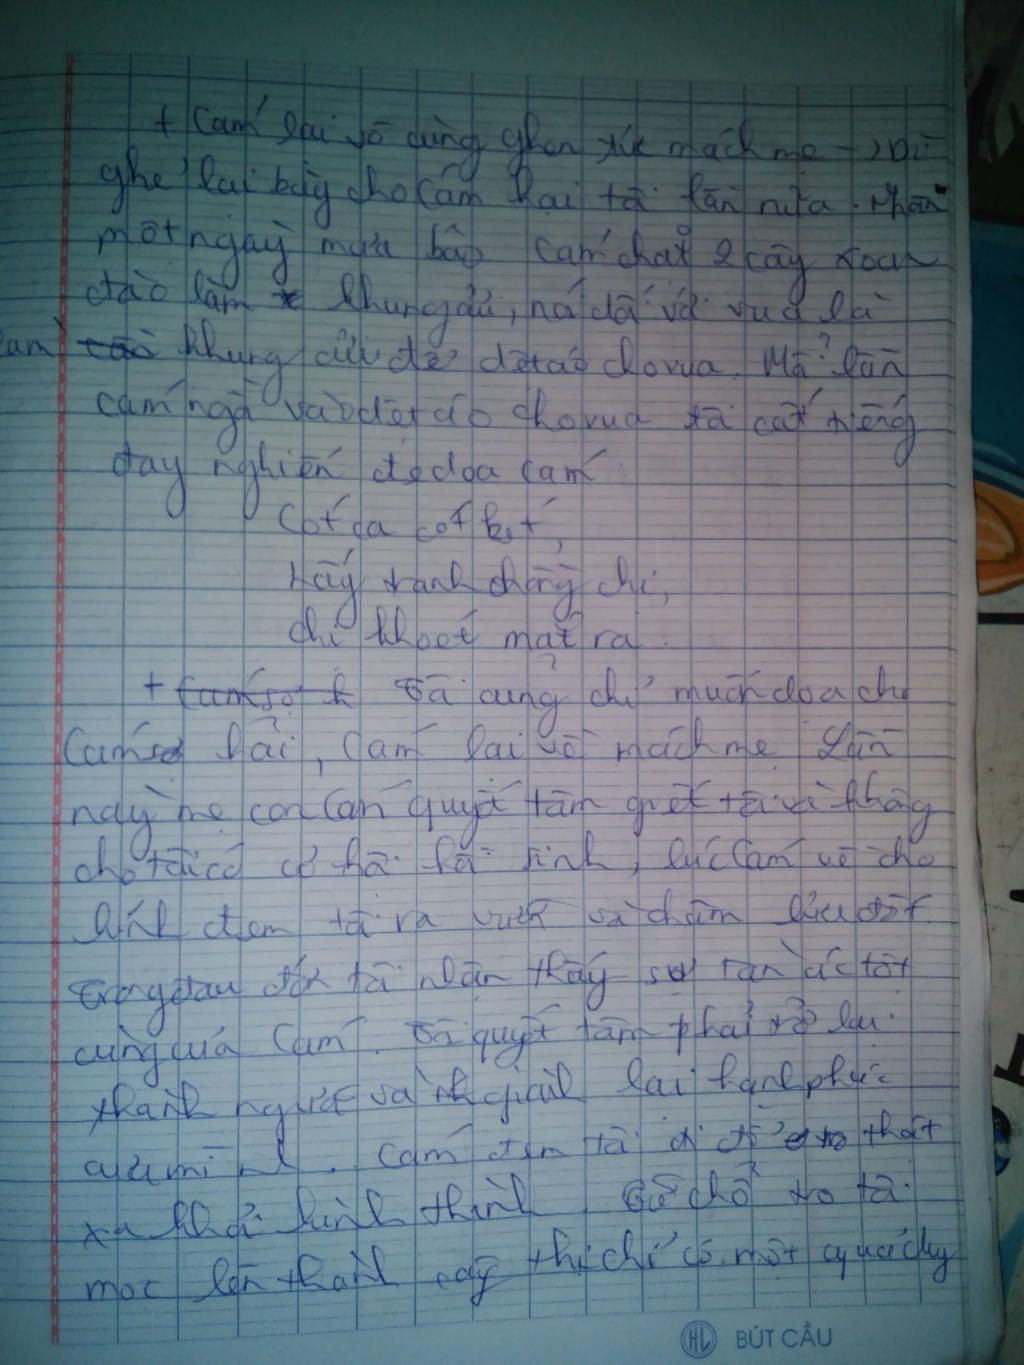 + Cám lại vô cùng ghen tức mách mẹ → Dì
ghẻ lại bày cho Cám hại tôi lần nữa. Nhân
một ngày mưa bão Cám chặt 2 cây xoan
đào làm khung cửi, nó dối với vua là
làm khung cửi để dệt áo cho vua. Mỗi lần
Cám ngồi vào dệt áo cho vua tôi cất tiếng
day nghiến đe dọa Cám
Cót ca cót két,
Lấy tranh chồng chị,
chị khoét mắt ra.
+ Tôi cũng chỉ muốn dọa cho
Cám sợ hãi, Cám lại về mách mẹ. Lần
này mẹ con Cám quyết tâm giết tôi vì không
cho tôi có cơ hội hồi sinh, lúc Cám về cho
lính đem tôi ra vườn và châm lửa đốt
Trong đau đớn tôi nhận thấy sự tàn ác tột
cùng của Cám. Tôi quyết tâm phải trở lại
thành người và giành lại hạnh phúc
của mình. Cám đem tôi đi đổ thật
xa khỏi kinh thành. Từ chỗ tro tôi
mọc lên thành cây thị chỉ có một quả
BÚT CẦU